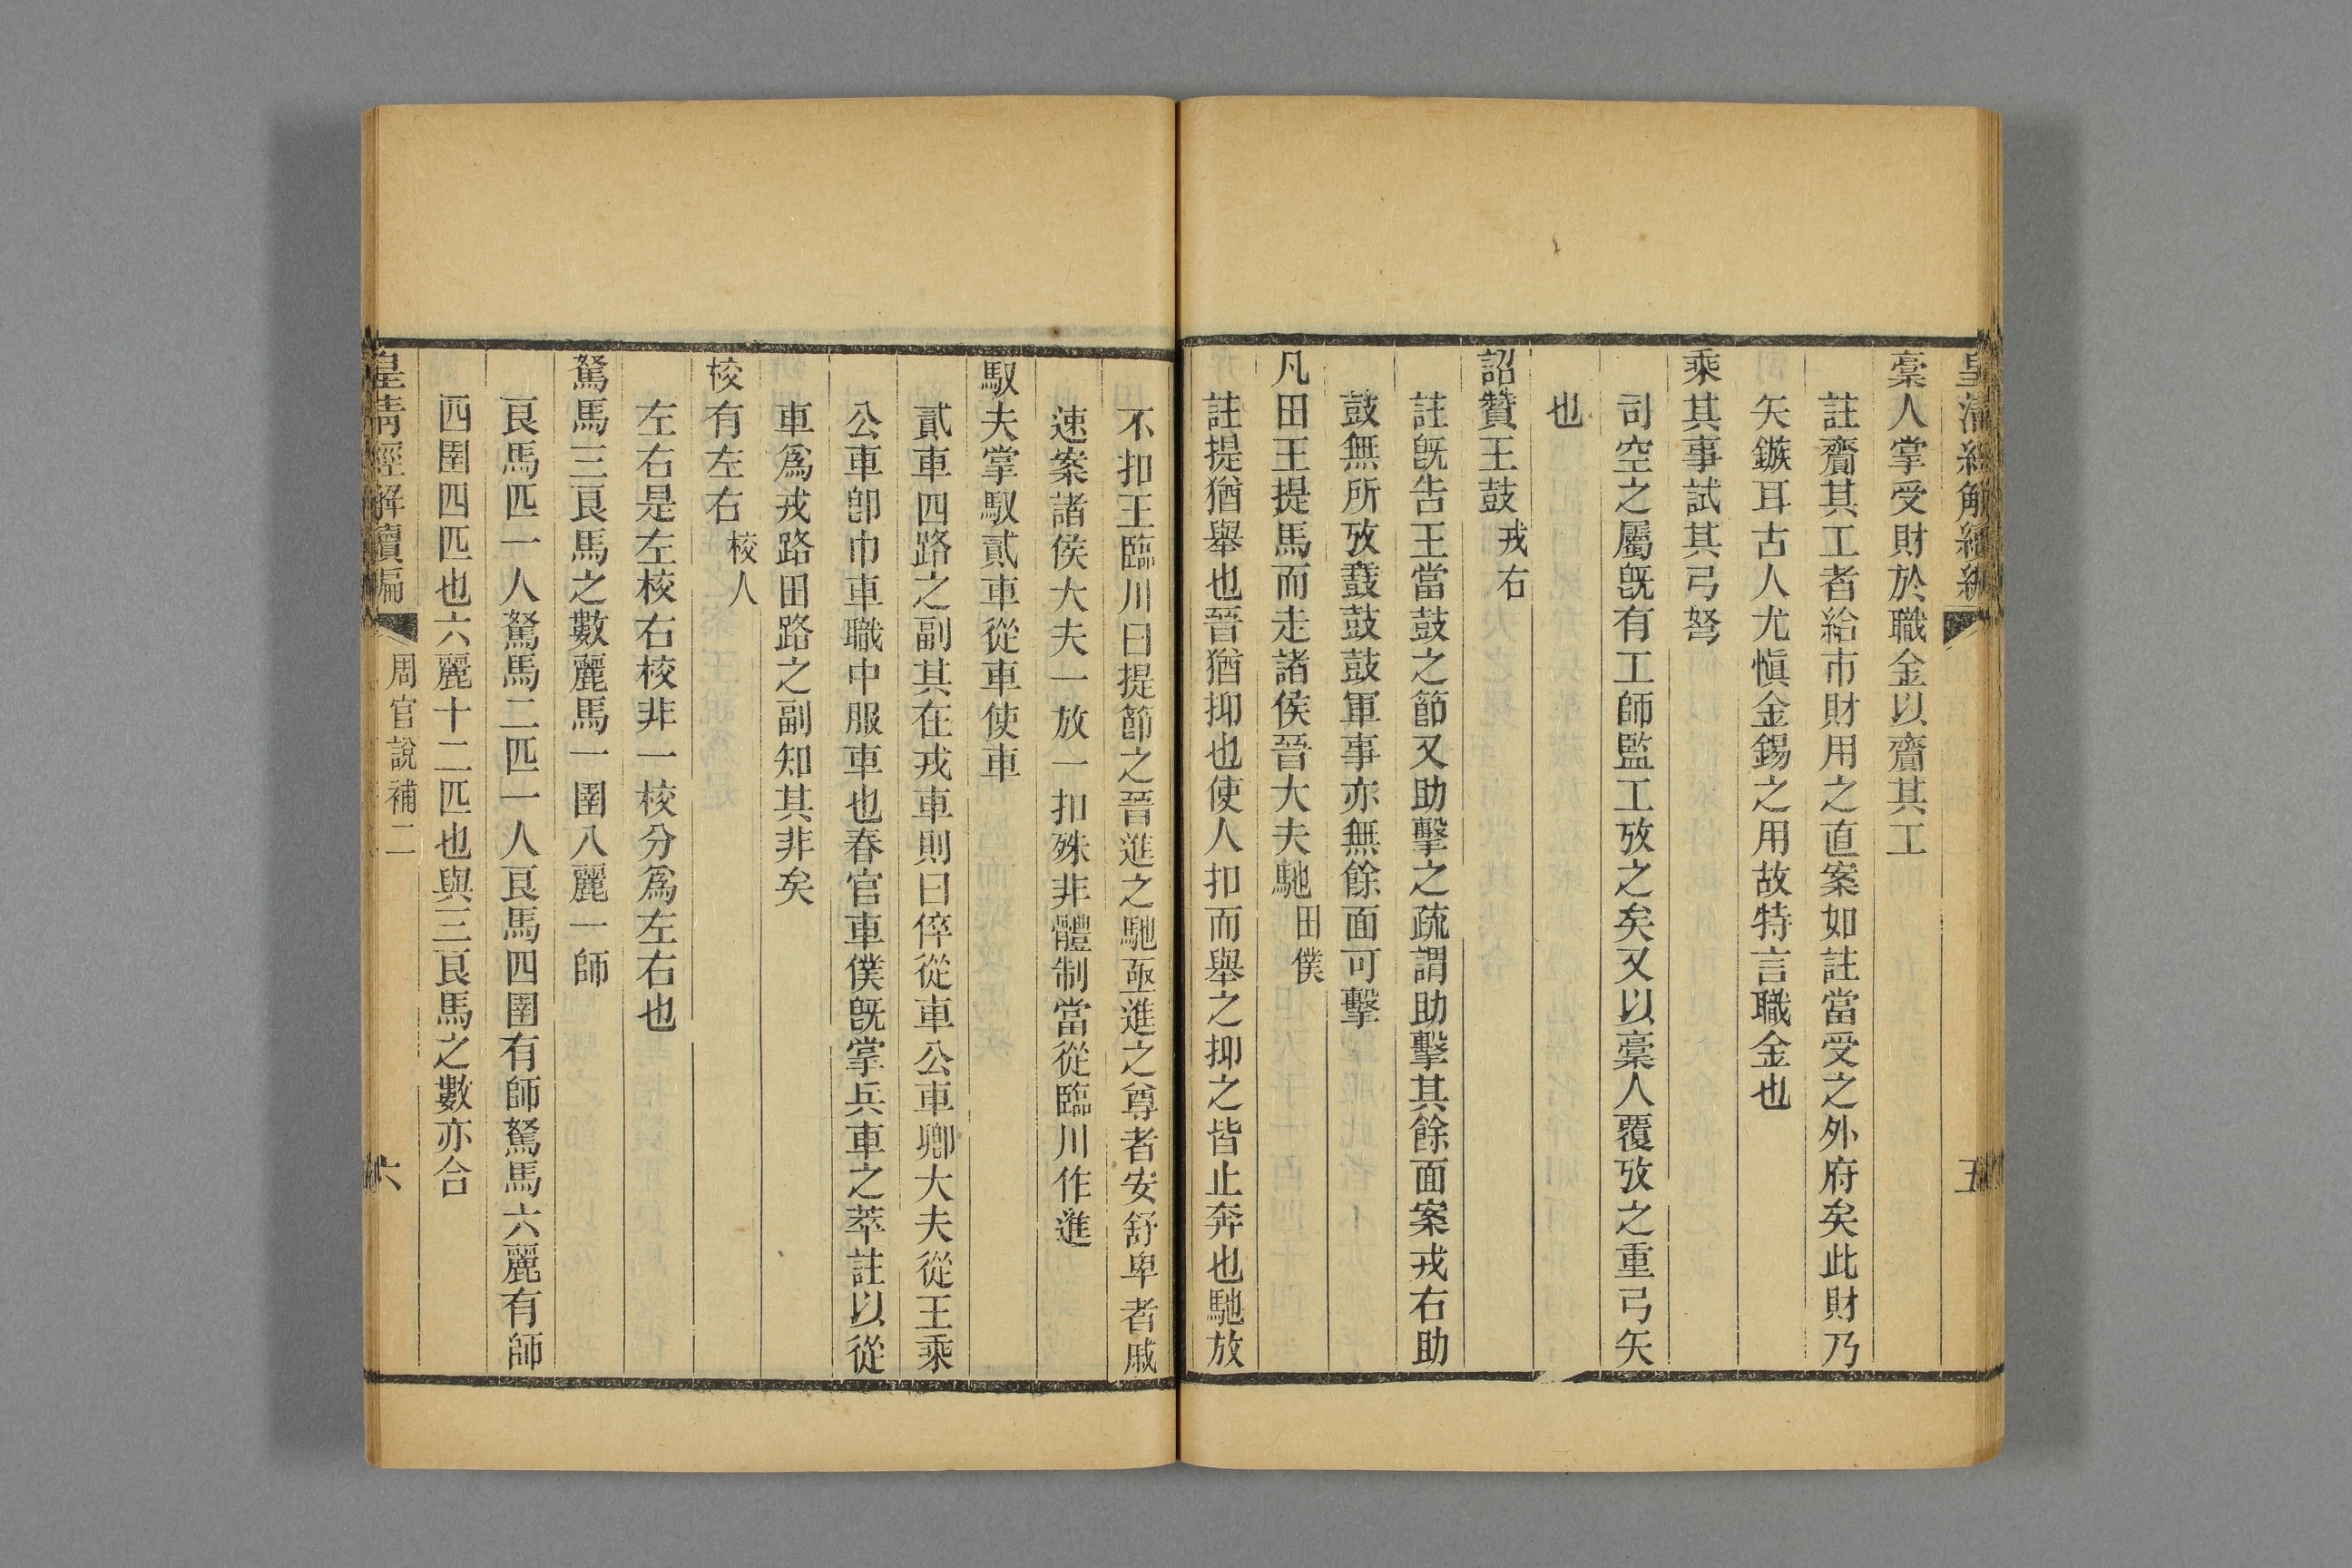 皇清經解續編
五
稾人掌受財於職金以齎其工
註齎其工者給市財用之直案如註當受之外府矣此財乃
矢鏃耳古人尤愼金錫之用故特言職金也
乘其事試其弓弩
司空之屬旣有工師監工攷之矣又以稾人覆攷之重弓矢
也
詔贊王鼓 戎右
註旣告王當鼓之節又助擊之疏謂助擊其餘面案戎右助
鼓無所攷鼖鼓鼓軍事亦無餘面可擊
凡田王提馬而走諸侯晉大夫馳 田僕
註提猶舉也晉猶抑也使人扣而舉之抑之皆止奔也馳放
不扣王臨川曰提節之晉進之馳亟進之尊者安舒卑者戚
速案諸侯大夫一放一扣殊非體制當從臨川作進
馭夫掌馭貳車從車使車
貳車四路之副其在戎車則曰倅從車公車卿大夫從王乘
公車卽巾車職中服車也春官車僕旣掌兵車之萃註以從
車爲戎路田路之副知其非矣
校有左右 校人
左右是左校右校非一校分爲左右也
駑馬三良馬之數麗馬一圉八麗一師
良馬匹一人駑馬二匹一人良馬四圉有師駑馬六麗有師
四圉四匹也六麗十二匹也與三良馬之數亦合
皇清經解續編
周官說補二
六